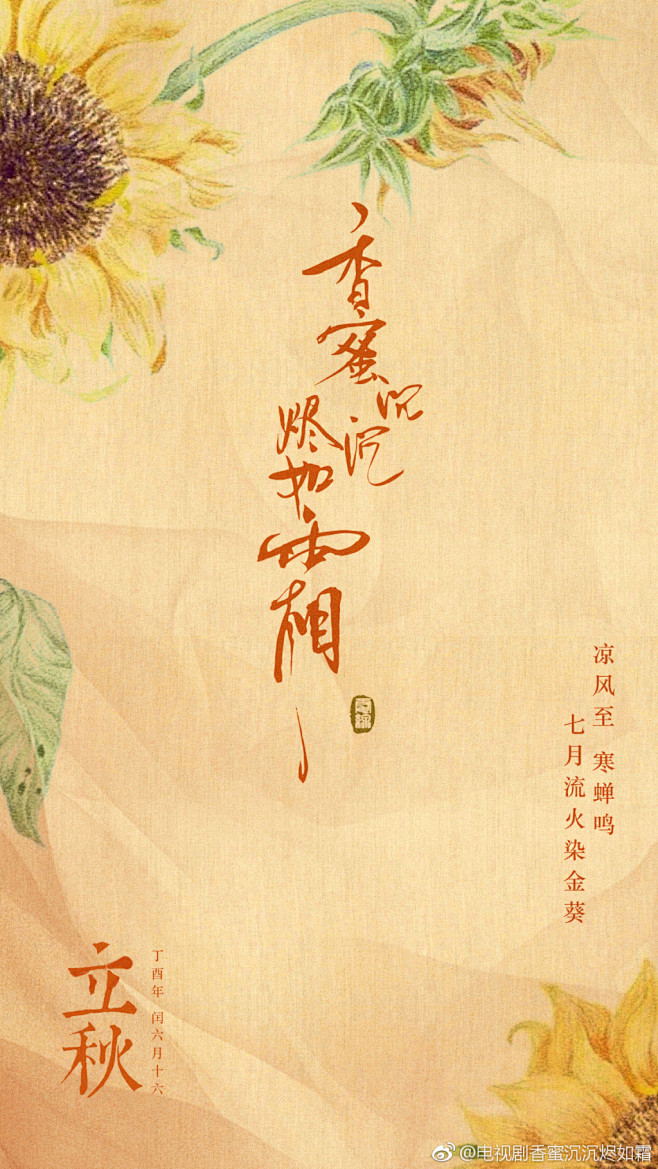 香蜜沉沉
烬如霜
凉风至 寒蝉鸣
七月流火染金葵
立秋
丁酉年 闰六月十六
@电视剧香蜜沉沉烬如霜